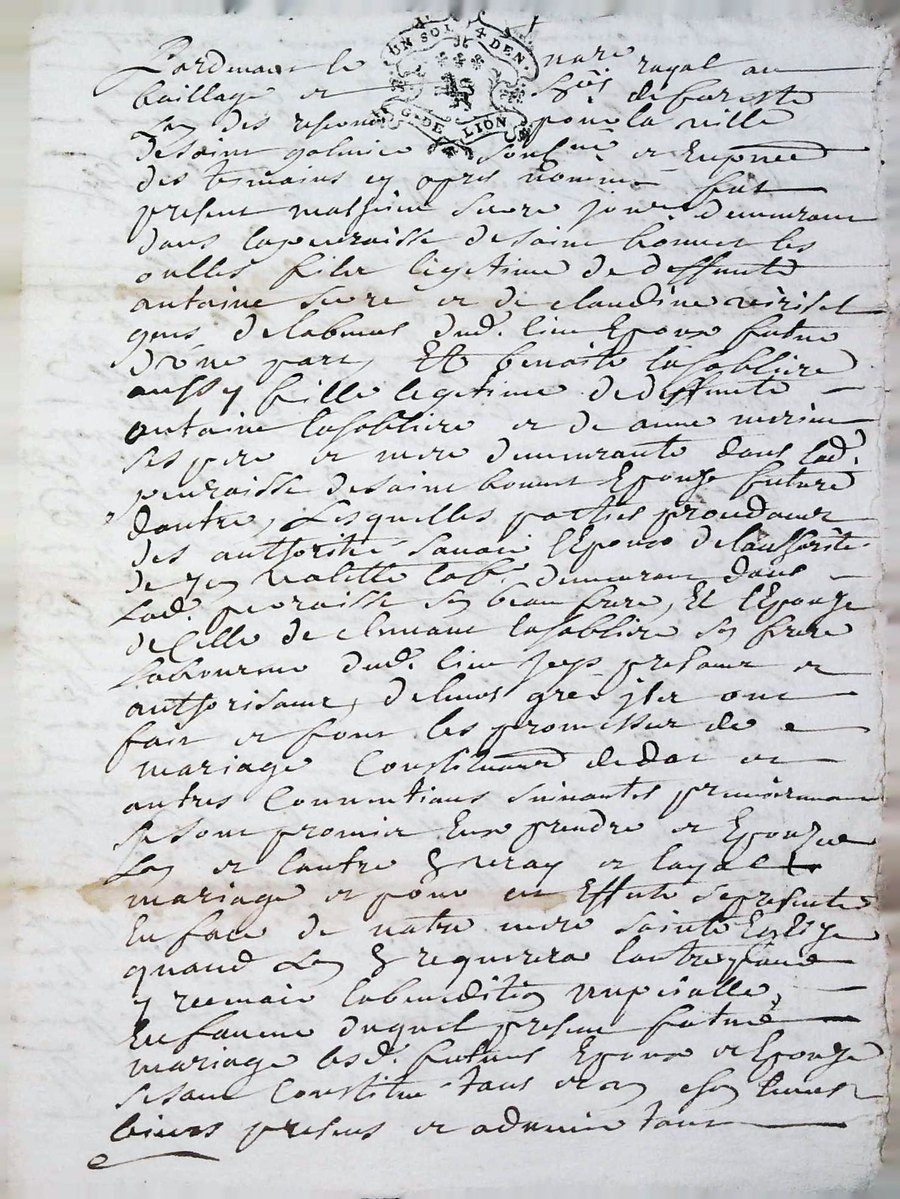 UN SOL 4 DEN.
G. DE LION
Pardevant le nore royal au
baillage et de foreste
Lun des reserve pour la ville
de saint galmier soubsné et En pnce
des temoins cy apres nommé fut
present mathieu serre demeurant
dans la perroisse de saint bonnet les
oulles fils legitime de deffunte
antoine serre et de claudine
gens dud. lieu Epoux futur
d'une part, Et benoite lasabliere
aussy fille legitime de deffunte
antoine lasabliere et de anne
ses pere et mere demeurante dans lad.
perroisse de saint bonnet Epouze future
dautre, Lesquelles parties procedant
des authorité savoir l'Epoux de lauthorité
de Jen valette lab. demeurant dans
lad. perroisse son beau frere, Et l'Epouze
de celle de clement lasabliere son frere
laboureur dud. lieu Jcy present et
authorisant, de leurs gré ont
fait et font les promesses de
mariage Constitution de dot et
autres Conventions suivantes premierement
se sont promis Eux prendre et Epouzer
Lun et lautre En vray et loyal
mariage et pour cet Effect se presenter
En face de notre mere sainte Eglize
quand Lun En requerera lautre pour
y recevoir la benediction nupcialle,
En faveur duquel present futur
mariage lesd. futurs Epoux et Epouze
se sont Constitué tous et un chun leurs
biens presens et advenir tant